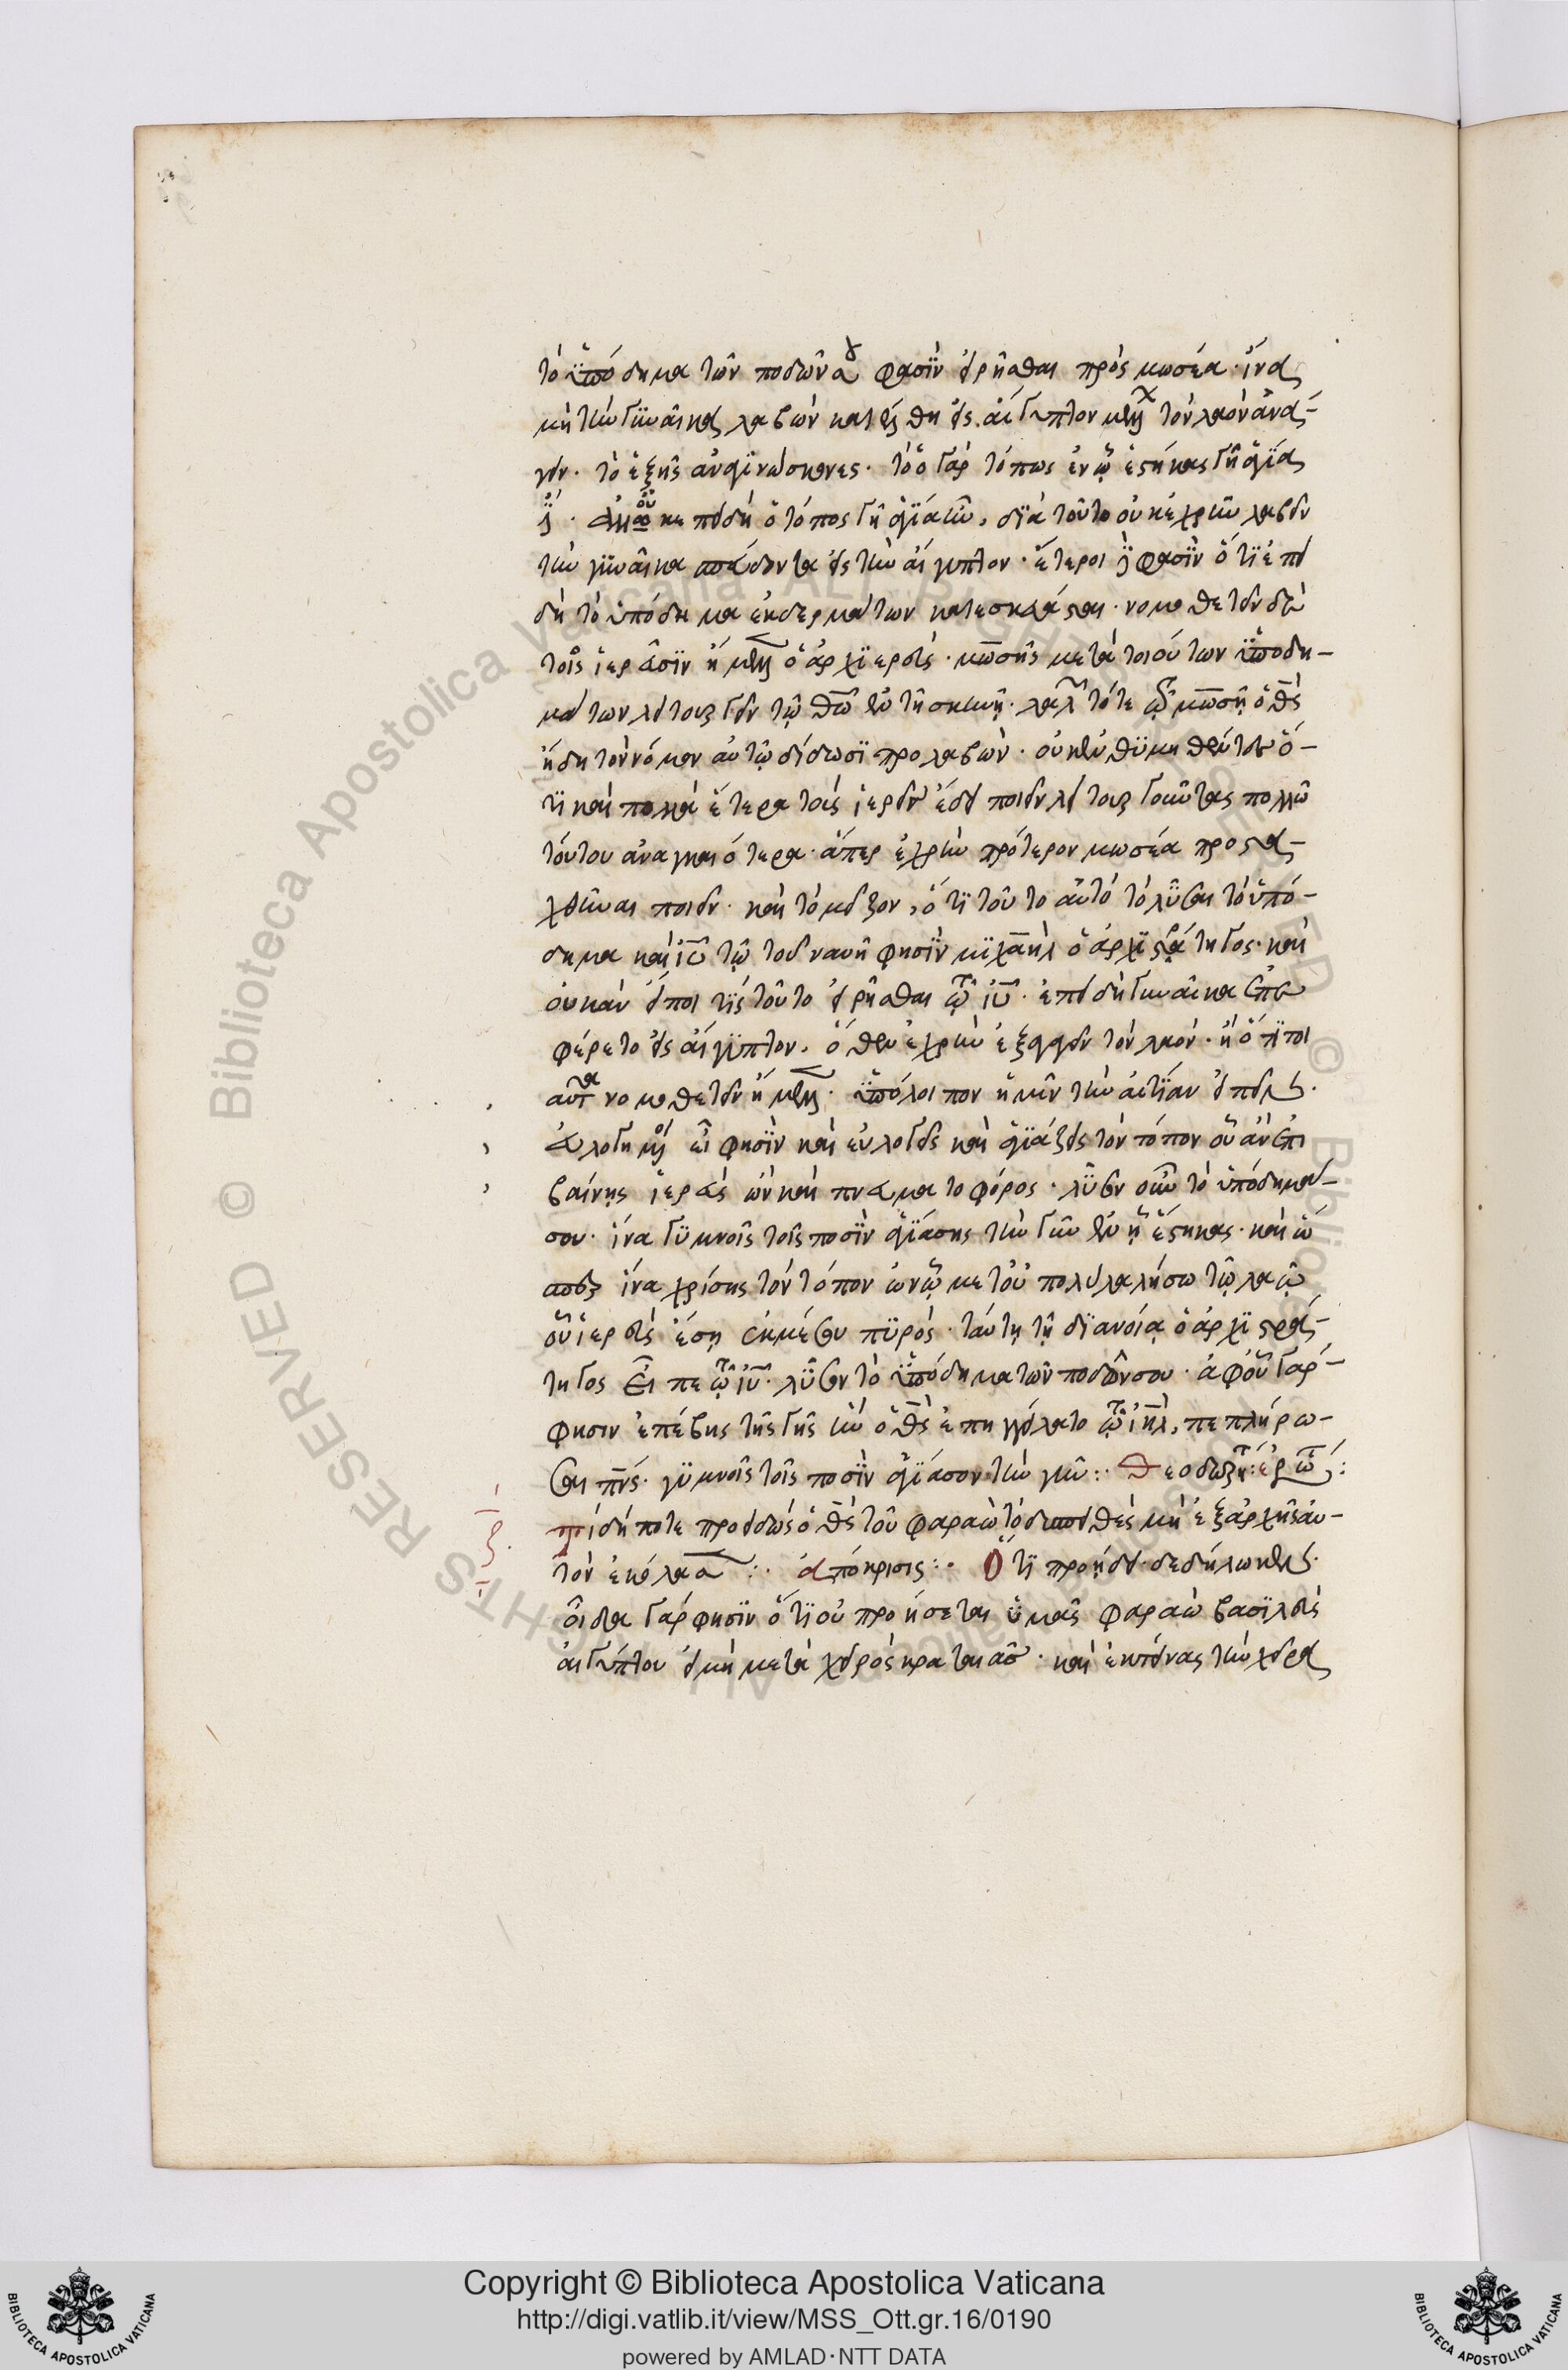 τὸ ὑπόδημα τῶν ποδῶν σου φασῒν εἰρῆσθαι πρὸς μωσέα· ἵνα
μὴ τὴν γυναῖκα λαβὼν κατέλθη εἰς αἴγυπτον μέλλων τὸν λαὸν ἀνά-
γειν· τὸ ἑξῆς ἀναγινώσκοντες· τὸ ὁ γὰρ τόπος ἐν ᾧ ἕστηκας γῆ ἁγία
ἐπειδὴ ὁ τόπος γῆ ἁγία ἦν, διὰ τοῦτο οὐκ ἐχρῆν λαβεῖν
τὴν γυναῖκα σπεύδοντα εἰς τὴν αἴγυπτον· ἕτεροι δὲ φασῒν ὅτι ἐπει
δὴ τὸ ὑπόδημα ἐκ δερμάτων κατεσκεύασται· νομοθετεῖν δὲ
τοῖς ἱερεῦσιν ἤμελλεν ὁ ἀρχιερεὺς· μωσῆς μετὰ τοιούτων ὑποδη-
μάτων λειτουργεῖν τῷ θῶ ἐν τῆ σκηνῆ· λαλεῖ τότε τῷ μωσῆ ὁ θς
ἤδη τὸν νόμον αὐτῷ δίδωσι προλαβών· οὐκ ἐνθυμηθέντες ὅ-
τι καὶ πολλὰ ἕτερα τοὺς ἱερεῖς ἔδει ποιεῖν λειτουργοῦντας πολλῶ
τούτου ἀναγκαιότερα· ἅπερ ἐχρῆν πρότερον μωσέα προστα-
χθῆναι ποιεῖν· καὶ τὸ μεῖζον, ὅτι τοῦτο αὐτὸ τὸ λῦσαι τὸ ὑπό-
δημα καὶ ιυ τῷ τοῦ ναυῆ φησῒν μιχαὴλ ὁ ἀρχιστράτηγος· καὶ
οὐκ ἂν εἴποι τὶς τοῦτο εἰρῆσθαι τῷ ιυ· ἐπειδὴ γυναῖκα ἐπε
φέρετο εἰς αἴγυπτον, ὅθεν ἐχρῆν ἐξαγαγεῖν τὸν λαόν· ἢ ὅτιπερ
αὐτὰ νομοθετεῖν ἤμελλεν· ὑπόλοιπον ἡμῖν τὴν αἰτίαν εἰπεῖν·
εὐλογημένος εἶ φησῒν καὶ εὐλογεῖς καὶ ἁγιάζεις τὸν τόπον οὗ ἂν ἐπι
βαίνης ἱερεὺς ὢν καὶ πνευματοφόρος· λῦσον οὖν τὸ ὑπόδημά
σου· ἵνα γυμνοῖς τοῖς ποσῒν ἁγιάσης τὴν γῆν ἐν ᾗ ἕστηκας· καὶ ὥ
σπερ ἵνα χρίσης τὸν τόπον ἐν ᾧ μετ' οὐ πολὺ λαλήσω τῷ λαῷ
οὗ ἱερεὺς ἔση ἐκ μέσου πυρός· ταύτη τῆ διανοία ὁ ἀρχιστρά-
τηγος εἶπε τῷ ιυ· λῦσον τὸ ὑπόδημα τῶν ποδῶν σου· ἀφ' οὗ γάρ
φησιν ἐπέβης τῆς γῆς ἣν ὁ θς ἐπηγγείλατο τῷ ιηλ, πεπλήρω-
σαι πνς· γυμνοῖς τοῖς ποσῒν ἁγίασον τὴν γῆν:· Θεοδωρήτου ἐρώτ:
Τί δήποτε προειδὼς ὁ θς τοῦ φαραὼ τὸ δυσπειθὲς μὴ ἐξ ἀρχῆς αὐ-
τὸν ἐκόλασε:· ἀπόκρισις:· Ὅτι προήδει δεδήλωκεν·
οἶδα γάρ φησῒν ὅτι οὐ προήσεται ὑμᾶς φαραὼ βασιλεὺς
αἰγύπτου εἰ μὴ μετὰ χειρὸς κραταιᾶς· καὶ ἐκτείνας τὴν χεῖρα
Copyright © Biblioteca Apostolica Vaticana
http://digi.vatlib.it/view/MSS_Ott.gr.16/0190
powered by AMLAD·NTT DATA